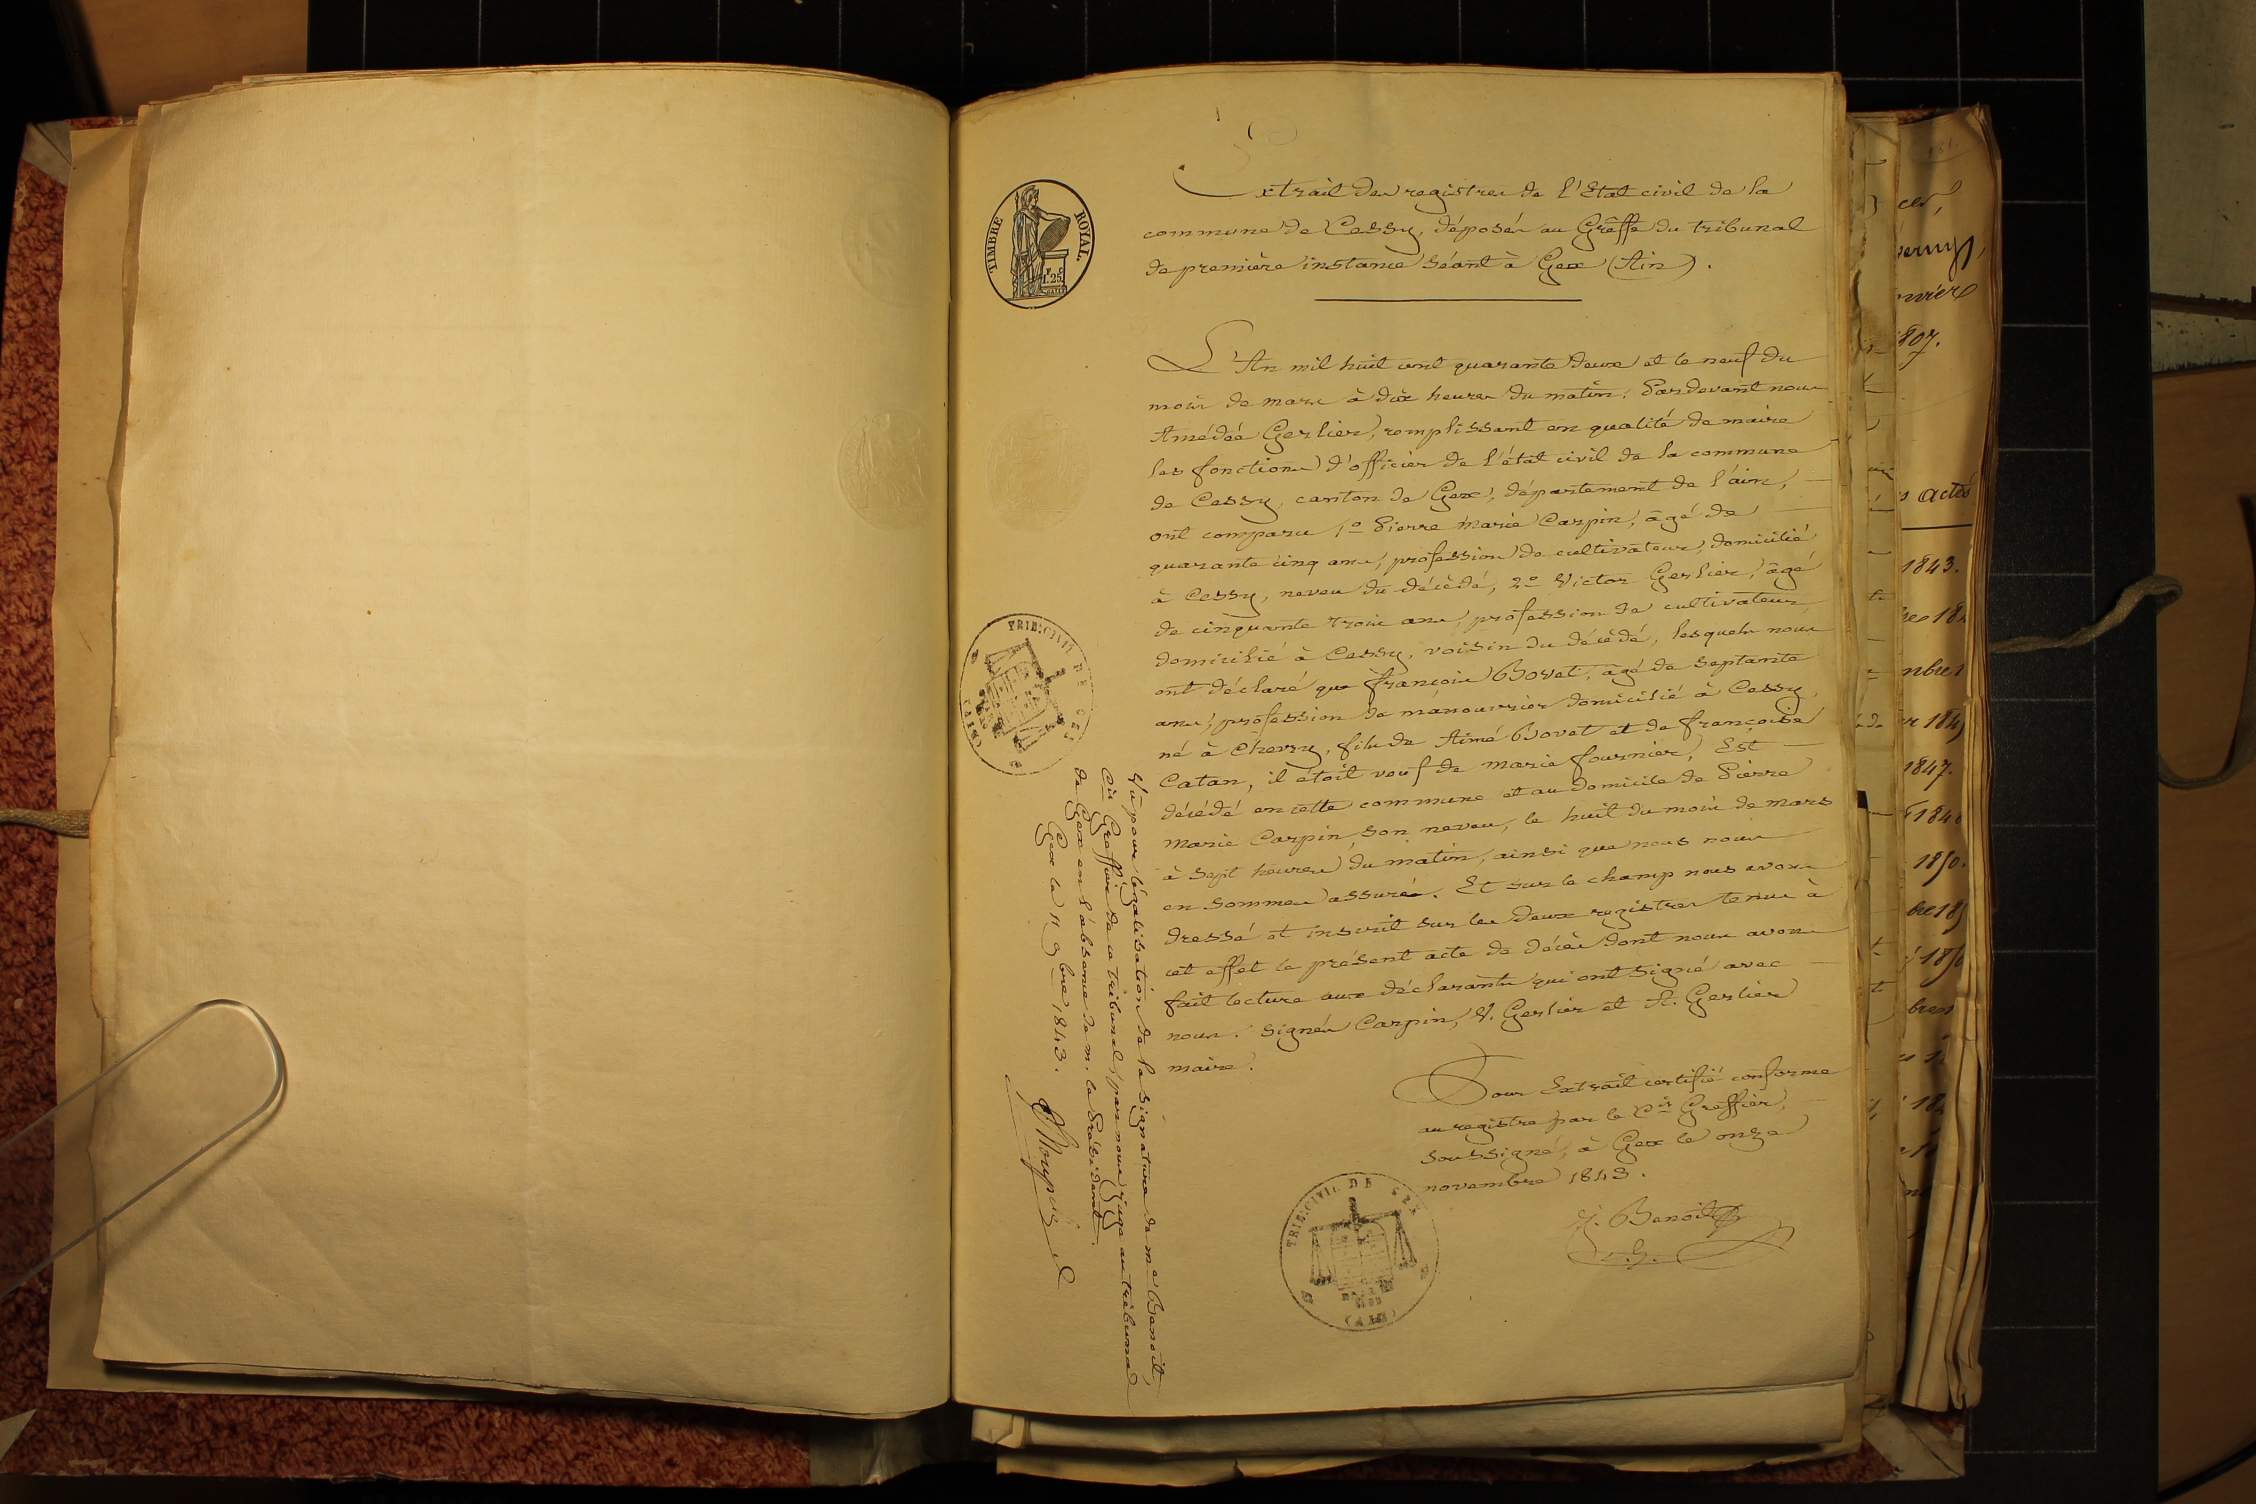 TIMBRE ROYAL.
1.25
Extrait des registres de l'Etat civil de la
commune de Cessy, déposés au Grêffe du tribunal
de première instance séant à Gex (Ain).
L'An mil huit cent quarante deux et le neuf du
mois de mars à dix heures du matin. Pardevant nous
Amédée Gerlier, remplissant en qualité de maire
les fonctions d'officier de l'état civil de la commune
de Cessy, canton de Gex, département de l'ain,
ont comparu 1o Pierre Marie Carpin, âgé de
quarante cinq ans, profession de cultivateur, domicilié
à Cessy, neveu du décédé, 2o Victor Gerlier, âgé
de cinquante trois ans, profession de cultivateur,
domicilié à Cessy, voisin du décédé, lesquels nous
ont déclaré que françois Bovet, âgé de septante
ans, profession de manouvrier domicilié à Cessy,
né à Chevry, fils de Aimé Bovet et de françoise
Catan, il étoit veuf de marie fournier, Est
décédé en cette commune et au domicile de Pierre
Marie Carpin, son neveu, le huit du mois de mars
à sept heures du matin, ainsi que nous nous
en sommes assurés. Et sur le champ nous avons
dressé et inscrit sur les deux registres tenus à
cet effet le présent acte de décès dont nous avons
fait lecture aux déclarants qui ont signé avec
nous. Signés Carpin, V. Gerlier et A. Gerlier
maire.
Pour Extrait certifié conforme
au registre par le Cis Greffier,
soussigné, à Gex le onze
novembre 1843.
J. Benoit
TRIB: CIVIL DE GEX
(AIN)
Vu pour légalisation de la signature de me Benoit,
Cis Greffier de ce tribunal, par nous juge au tribunal
de Gex en l'absence de m. le Président.
Gex le 11 9bre 1843.
TRIB: CIVIL DE GEX
(AIN)
1807.
actes
1843.
1847.
1850.